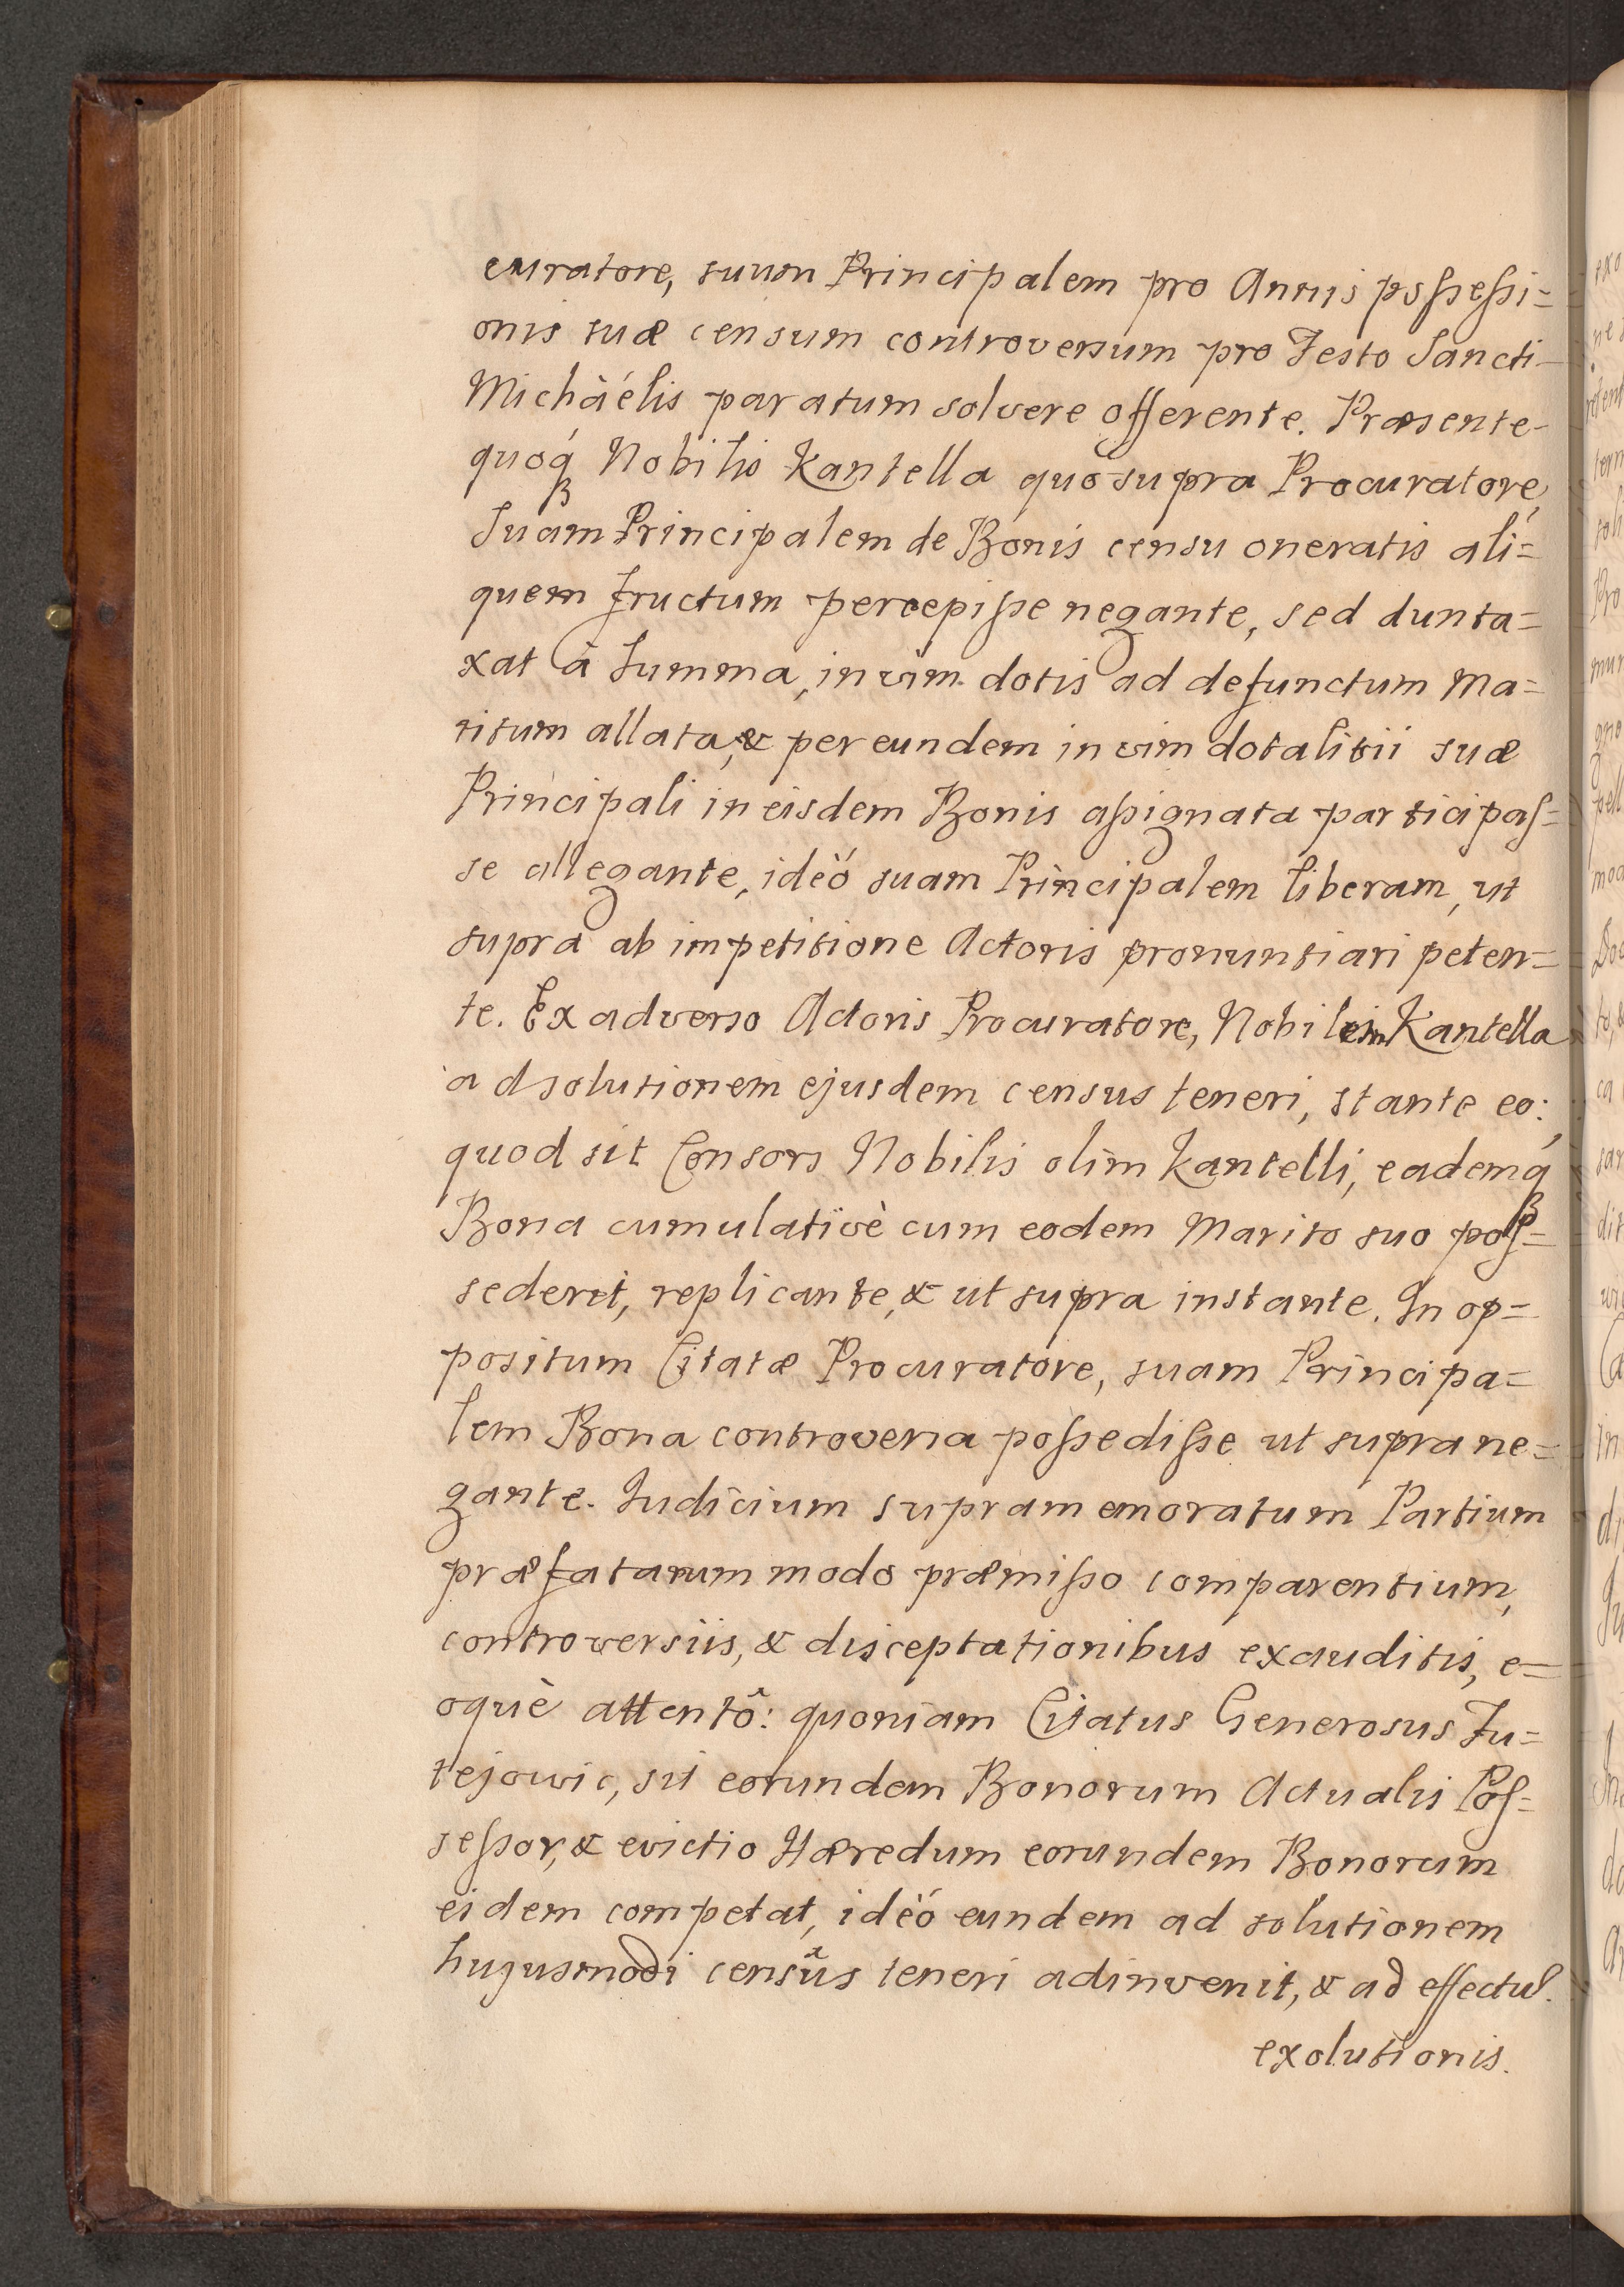 curatore, suum Principalem pro Annis poſseſsi=
onis suæ censum controversum pro Festo Sancti
Michàélis paratum solvere offerente. Præsente
quoq́ꝫ Nobilis Kantella quô supra Procuratore,
Suam Principalem de Bonis censu oneratis ali=
quem fructum percepiſse negante, sed dunta=
xat à Summa, in vim dotis ad defunctum Ma=
ritum allata, & per eundem in vim dotalitii suæ
Principali in eisdem Bonis aſsignata participaſ=
se allegante, idèó suam Principalem liberam, ut
supra ab impetitione Actoris pronuntiari peten=
te. Ex adverso Actoris Procuratore, Nobilem Kantella
ad solutionem ejusdem census teneri, stante eo:
quod sit Consors Nobilis olim Kantelli, eademq́ꝫ
Bona cumulativè cum eodem Marito suo poſ=
sederit, replicante, & ut supra instante. In op=
positum Citatæ Procuratore, suam Principa=
lem Bona controversa poſsediſse ut supra ne=
gante. Iudicium supramemoratum Partium
præfatarum modo præmiſso comparentium,
controversiis, & disceptationibus exauditis, e=
oquè attentô: quoniam Citatus Generosus Fu=
tejowic, sit eorundem Bonorum Actualis Poſ=
seſsor, & evictio Hæredum eorundem Bonorum
eidem competat, idèó eundem ad solutionem
hujusmodi censûs teneri adinvenit, & ad effectul.
exolutionis.